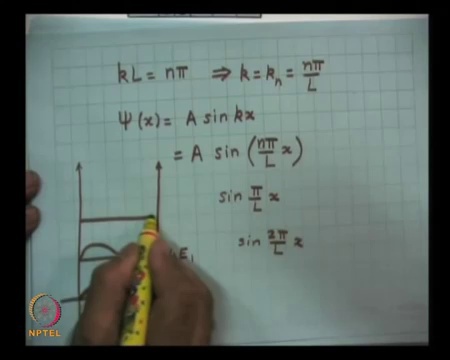 kL = nπ ⇒ k = kₙ = nπ/L
Ψ(x) = A sin kx
= A sin (nπ/L x)
sin π/L x
E₁
sin 2π/L x
NPTEL